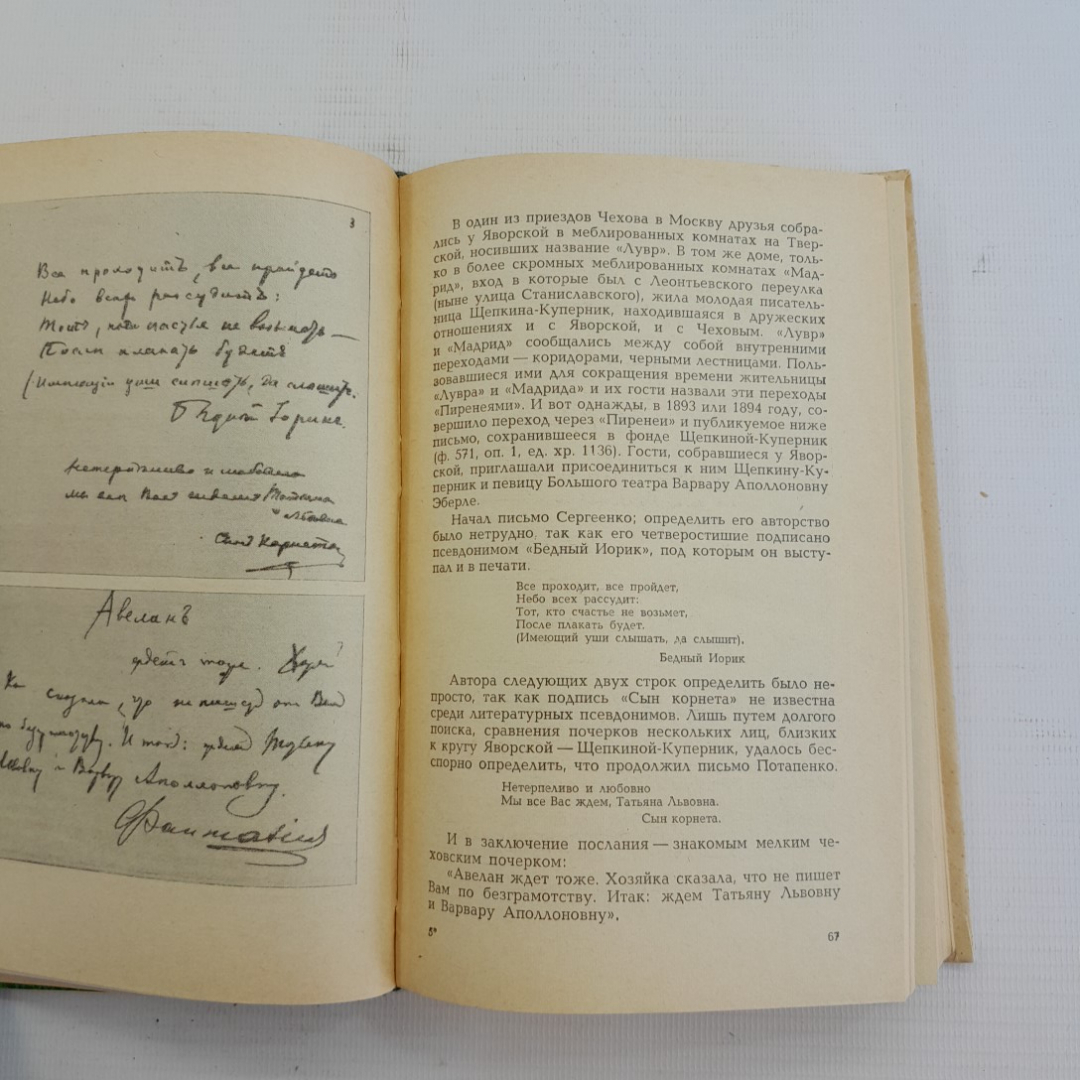 3
Все проходитъ, все пройдетъ
Небо всѣхъ разсудитъ:
Тотъ, кто счастья не возьметъ —
Послѣ плакать будетъ
(Имѣющій уши слышать, да слышитъ.
Бѣдный Іорикъ.
Нетерпѣливо и любовно
мы всѣ Васъ ждемъ Татьяна
Львовна
Сынъ Корнета
Авеланъ
ждетъ тоже.
сказала, что не пишетъ Вам
по безграмотству. И такъ: ждемъ Татьяну
Львовну и Варвару Аполлоновну.
В один из приездов Чехова в Москву друзья собра-
лись у Яворской в меблированных комнатах на Твер-
ской, носивших название «Лувр». В том же доме, толь-
ко в более скромных меблированных комнатах «Мад-
рид», вход в которые был с Леонтьевского переулка
(ныне улица Станиславского), жила молодая писатель-
ница Щепкина-Куперник, находившаяся в дружеских
отношениях и с Яворской, и с Чеховым. «Лувр»
и «Мадрид» сообщались между собой внутренними
переходами — коридорами, черными лестницами. Поль-
зовавшиеся ими для сокращения времени жительницы
«Лувра» и «Мадрида» и их гости назвали эти переходы
«Пиренеями». И вот однажды, в 1893 или 1894 году, со-
вершило переход через «Пиренеи» и публикуемое ниже
письмо, сохранившееся в фонде Щепкиной-Куперник
(ф. 571, оп. 1, ед. хр. 1136). Гости, собравшиеся у Явор-
ской, приглашали присоединиться к ним Щепкину-Ку-
перник и певицу Большого театра Варвару Аполлоновну
Эберле.
Начал письмо Сергеенко; определить его авторство
было нетрудно, так как его четверостишие подписано
псевдонимом «Бедный Иорик», под которым он высту-
пал и в печати.
Все проходит, все пройдет,
Небо всех рассудит:
Тот, кто счастье не возьмет,
После плакать будет.
(Имеющий уши слышать, да слышит),
Бедный Иорик
Автора следующих двух строк определить было не-
просто, так как подпись «Сын корнета» не известна
среди литературных псевдонимов. Лишь путем долгого
поиска, сравнения почерков нескольких лиц, близких
к кругу Яворской — Щепкиной-Куперник, удалось бес-
спорно определить, что продолжил письмо Потапенко.
Нетерпеливо и любовно
Мы все Вас ждем, Татьяна Львовна.
Сын корнета.
И в заключение послания — знакомым мелким че-
ховским почерком:
«Авелан ждет тоже. Хозяйка сказала, что не пишет
Вам по безграмотству. Итак: ждем Татьяну Львовну
и Варвару Аполлоновну»,
5*
67